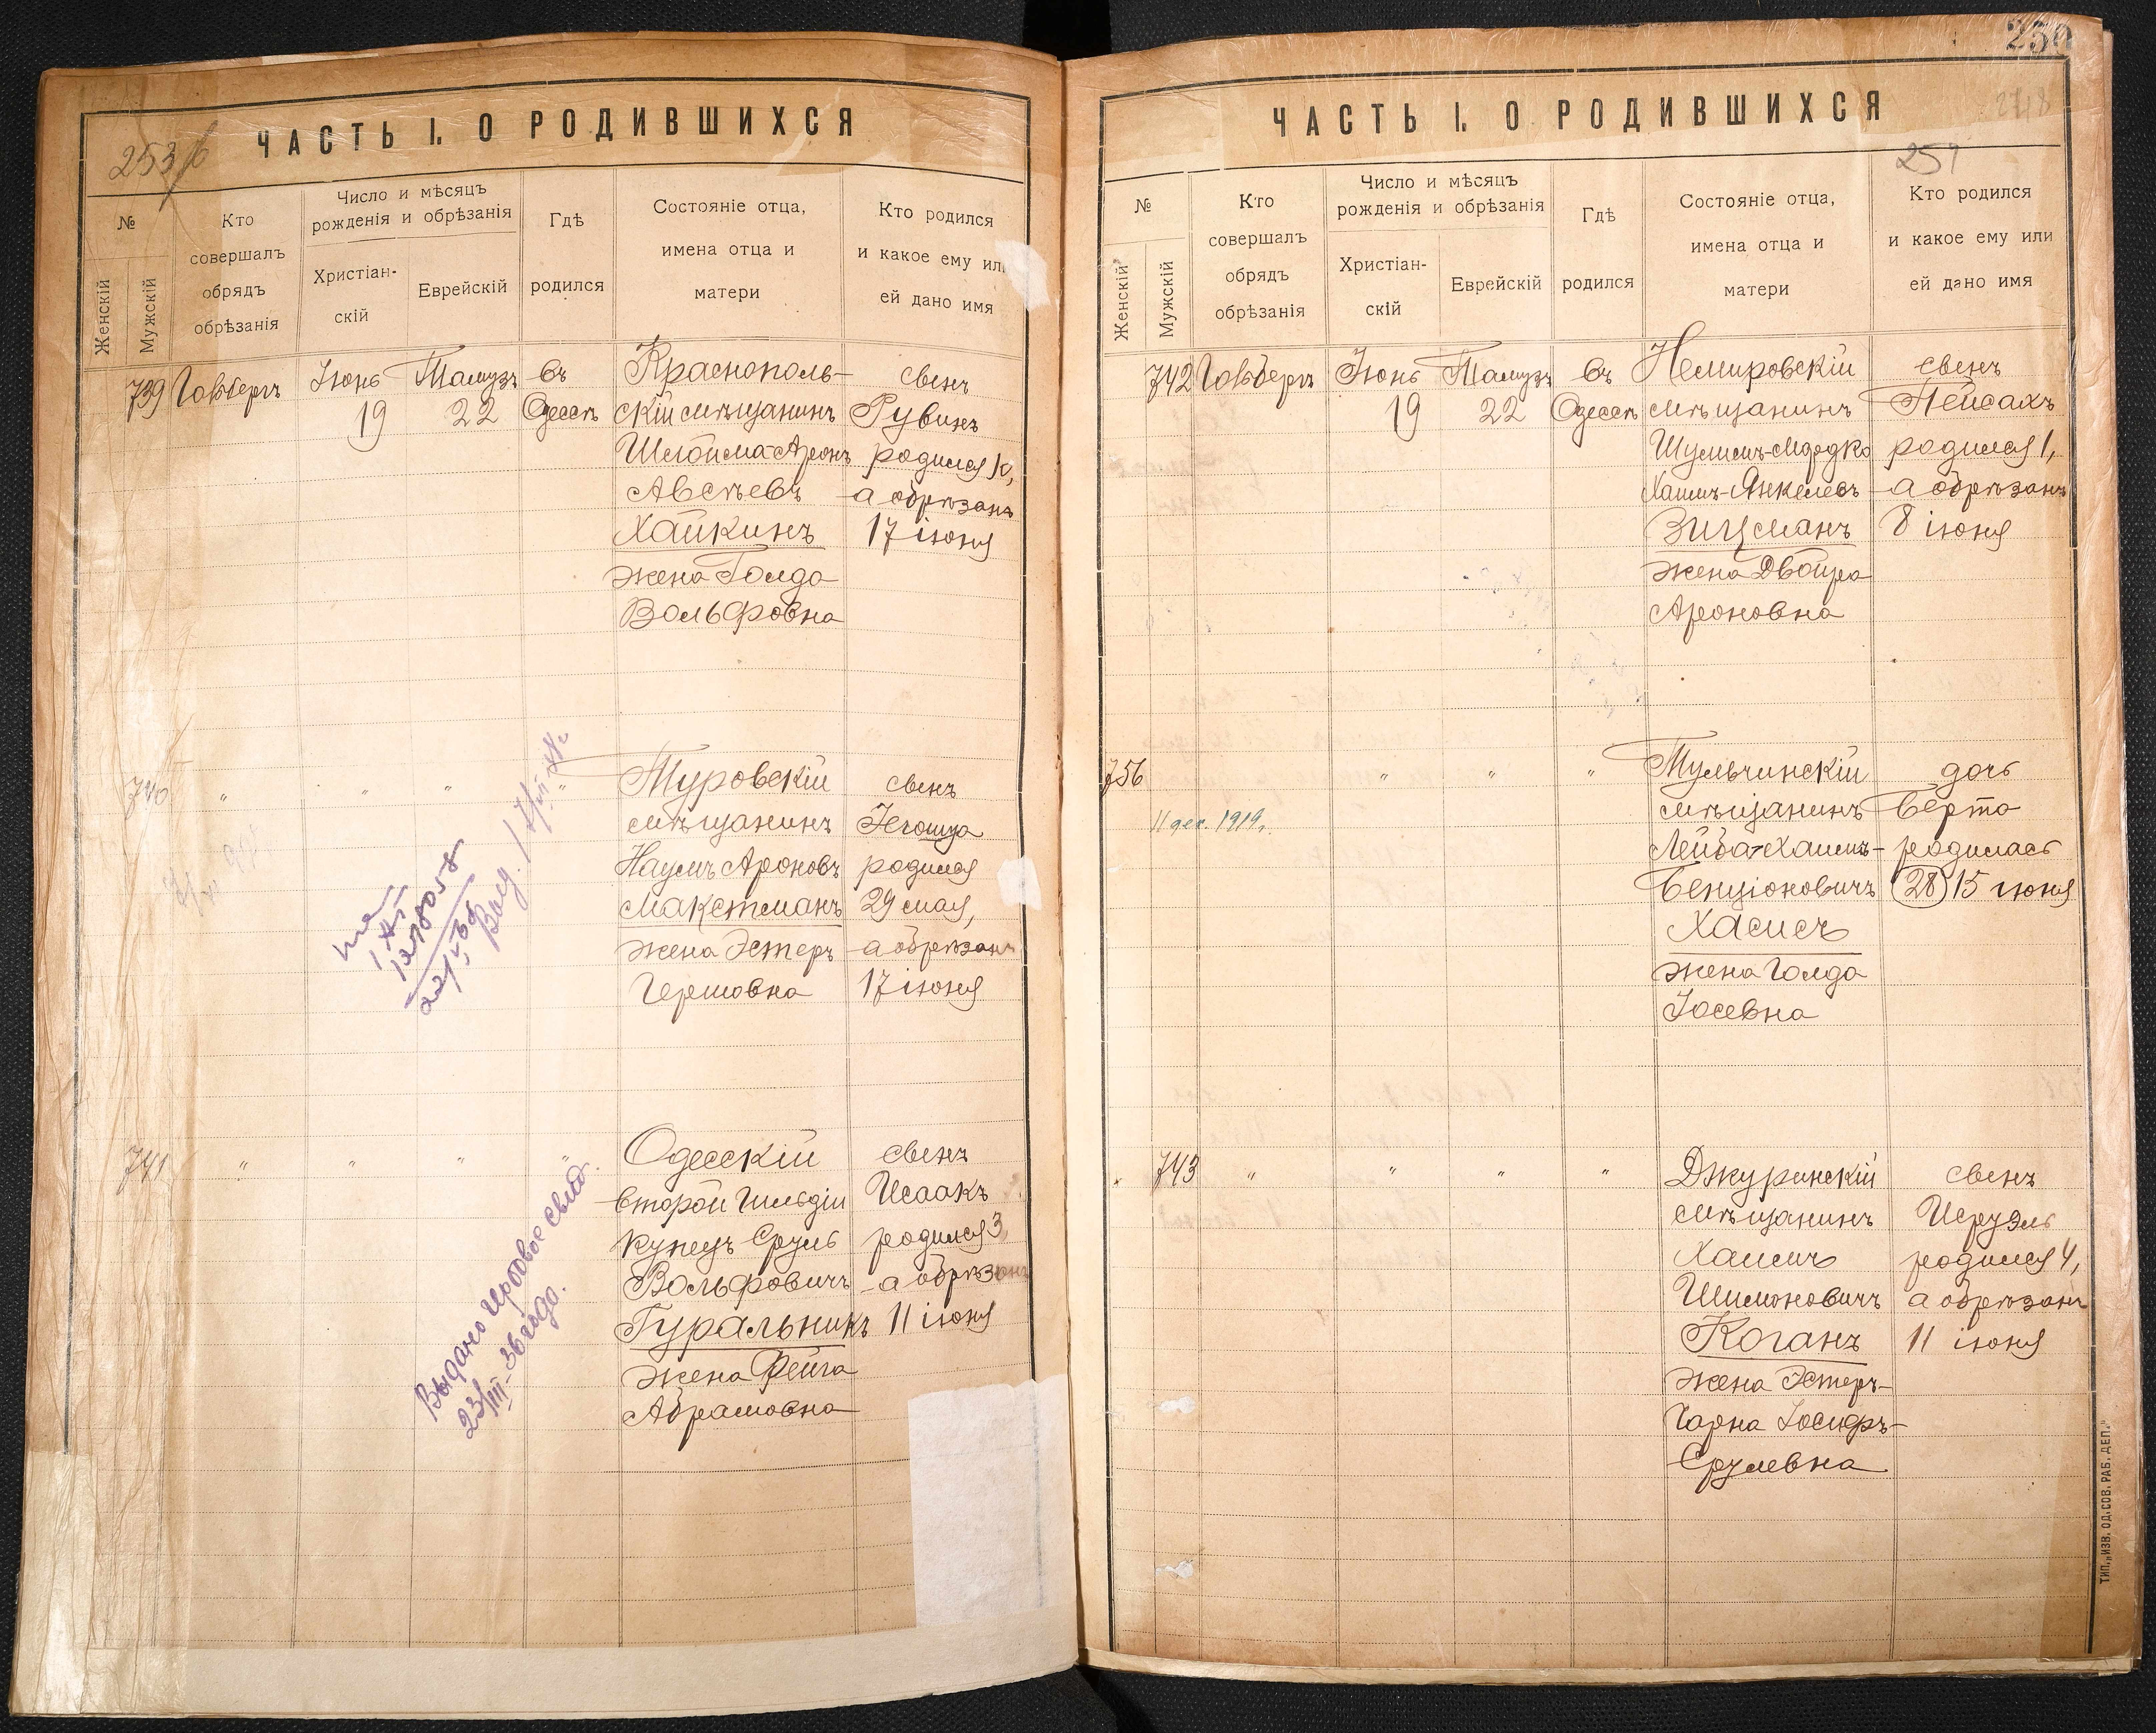 253
ЧАСТЬ I. О РОДИВШИХСЯ
№
Женскій
Мужскій
Кто
совершалъ
обрядъ
обрѣзанія
Число и мѣсяцъ
рожденія и обрѣзанія
Христіан-
скій
Еврейскій
Гдѣ
родился
Состояніе отца,
имена отца и
матери
Кто родился
и какое ему или
ей дано имя
739 Іюнь Тамузъ въ Краснополь- сынъ
19 22 Одессѣ скій мѣщанинъ Рувинъ
Шлойма-Аронъ родился
Авсѣевъ а обрѣзанъ
Хайкинъ 17 іюня
жена Голда
Вольфовна
740 " " " " Туровскій сынъ
мѣщанинъ Іегошуа
Наумъ Ароновъ родился
Макстманъ 29 мая,
жена Эстеръ а обрѣзанъ
Гершовна 17 іюня
741 " " " " Одесскій сынъ
второй гильдіи Исаакъ
купецъ Сруль родился 3,
Вольфовичъ а обрѣзанъ
Гуральникъ 11 іюня
жена Фейга
Абрамовна
Выдано гербовое свид.
23/III-36 года.
250
2718
ЧАСТЬ I. О РОДИВШИХСЯ
№
Женскій
Мужскій
Кто
совершалъ
обрядъ
обрѣзанія
Число и мѣсяцъ
рожденія и обрѣзанія
Христіан-
скій
Еврейскій
Гдѣ
родился
Состояніе отца,
имена отца и
матери
Кто родился
и какое ему или
ей дано имя
742 Іюнь Тамузъ въ Немировскій сынъ
19 22 Одессѣ мѣщанинъ Пейсахъ
Шулимъ-Мордко родился 1,
Хаимъ-Янкелевъ а обрѣзанъ
Зицманъ 8 іюня
жена Двойра
Ароновна
756 " " " Тульчинскій дочь
11 дек. 1919 г. мѣщанинъ Берта
Лейба-Хаимъ- родилась
Бенціоновичъ (28) 15 іюня
Хасисъ
жена Голда
Іосевна
743 " " " " Джуринскій сынъ
мѣщанинъ Исруэль
Хаимъ родился 4,
Шимоновичъ а обрѣзанъ
Коганъ 11 іюня
жена Эстеръ-
Чарна Іосифъ-
Срулевна
ТИП. „ИЗВ. ОД. СОВ. РАБ. ДЕП."